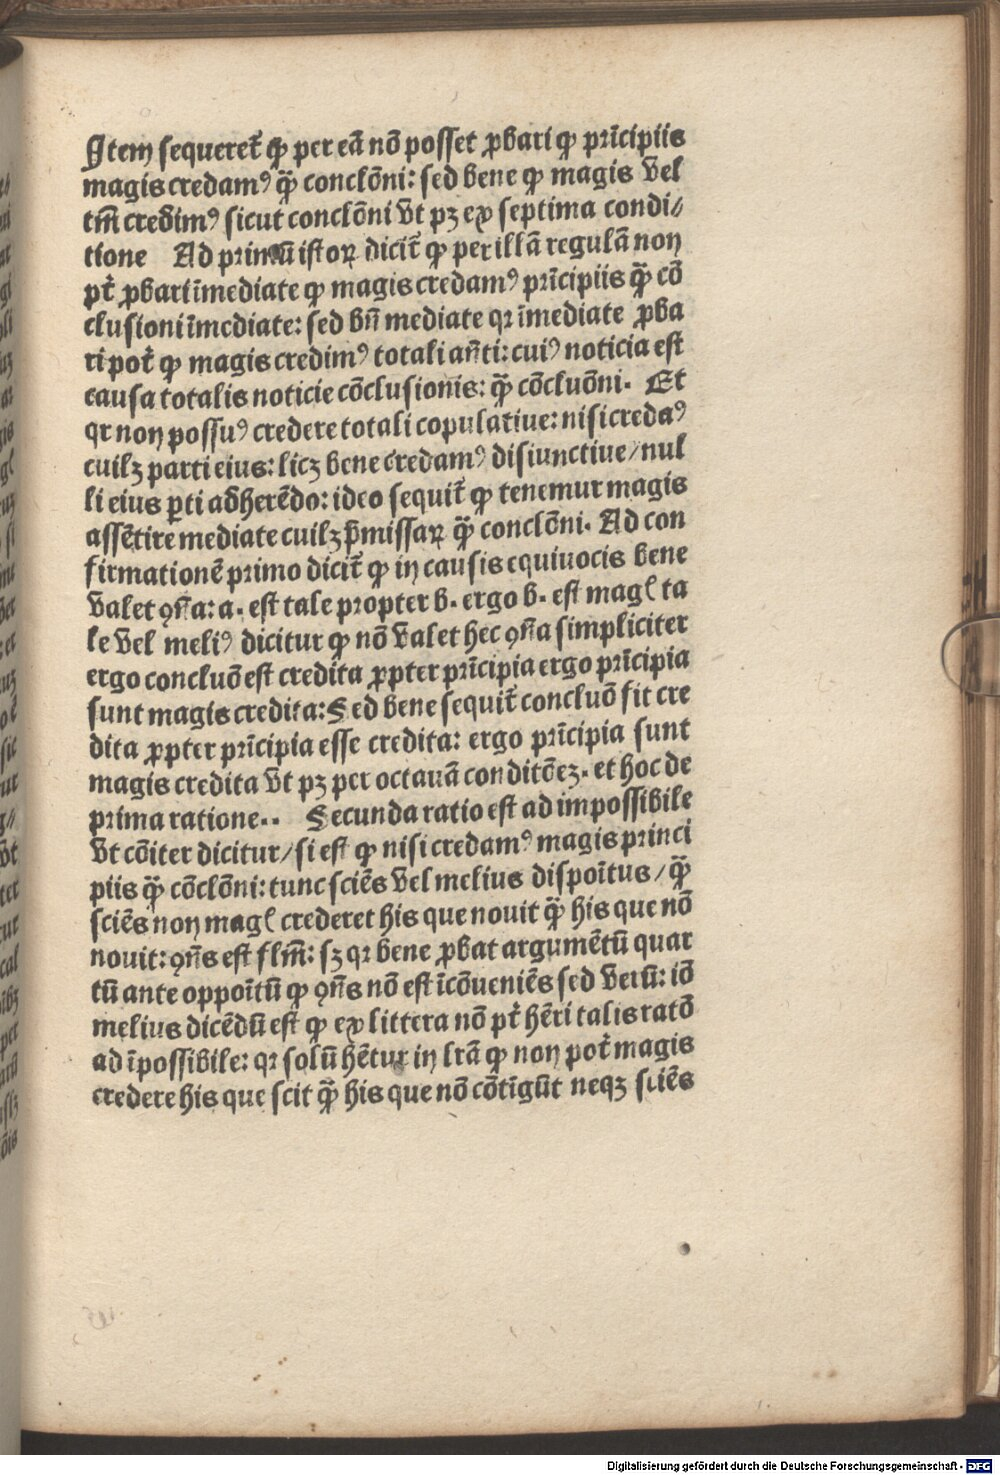 Item sequeret᷑ ꝙ per eā nō posset ꝓbari ꝙ prīcipiis
magis credamꝰ q̄ꝫ conclōni: sed bene ꝙ magis vel
tm̄ credimꝰ sicut conclōni vt pꝫ ex septima condi⸗
tione Ad primū istoꝝ dicit᷑ ꝙ per illā regulā non
pt̄ ꝓbari īmediate ꝙ magis credamꝰ prīcipiis q̄ꝫ cō
clusioni īmediate: sed bn̄ mediate qꝛ īmediate ꝓba
ri pot̄ ꝙ magis credimꝰ totali an̄ti: cuiꝰ noticia est
causa totalis noticie cōclusionis: q̄ꝫ cōcluōni. Et
qꝛ non possuꝰ credere totali copulatiue: nisi credaꝰ
cuilꝫ parti eius: licꝫ bene credamꝰ disiunctiue/ nul
li eius ꝑti adherēdo: ideo sequit᷑ ꝙ tenemur magis
assētire mediate cuilꝫ p̄missaꝝ q̄ꝫ conclōni. Ad con
firmationē primo dicit᷑ ꝙ in causis equiuocis bene
valet ꝯn̄a: a. est tale propter b. ergo b. est magꝭ ta
le vel meliꝰ dicitur ꝙ nō valet hec ꝯn̄a simpliciter
ergo concluō est credita ꝓpter prīcipia ergo prīcipia
sunt magis credita: Sed bene sequit᷑ concluō sit cre
dita ꝓpter prīcipia esse credita: ergo prīcipia sunt
magis credita vt pꝫ per octauā conditōeꝫ. et hoc de
prima ratione.. Secunda ratio est ad impossibile
vt cōiter dicitur/ si est ꝙ nisi credamꝰ magis princi
piis q̄ꝫ cōclōni: tunc sciēs vel melius dispoītus/ q̄ꝫ
sciēs non magꝭ crederet his que nouit q̄ꝫ his que nō
nouit: ꝯn̄s est flm̄: sꝫ qꝛ bene ꝓbat argumētū quar
tū ante oppoītū ꝙ ꝯn̄s nō est īcōueniēs sed verū: iō
melius dicēdū est ꝙ ex littera nō pt̄ hēri talis ratō
ad īpossibile: qꝛ solū hētur in lr̄a ꝙ non pot̄ magis
credere his que scit q̄ꝫ his que nō cōtīgūt neqꝫ sciēs